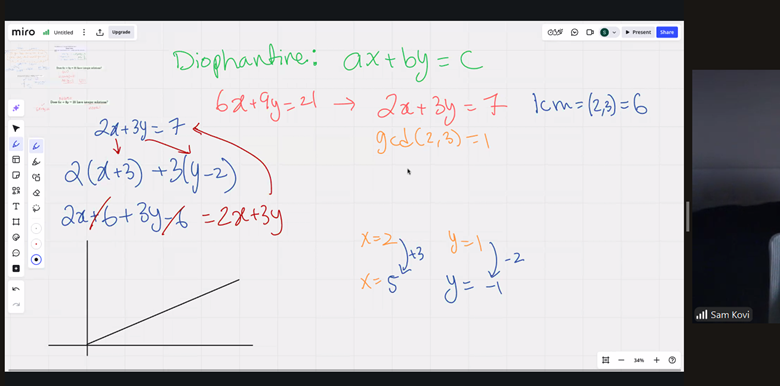 miro
Untitled
Upgrade
Present
Share
Diophantine: ax+by=c
6x+9y=21 → 2x+3y=7
lcm=(2,3)=6
gcd(2,3)=1
2x+3y=7
2(x+3)+3(y-2)
2x+6+3y-6 =2x+3y
x=2 y=1
+3 -2
x=5 y=-1
34%
Sam Kovi